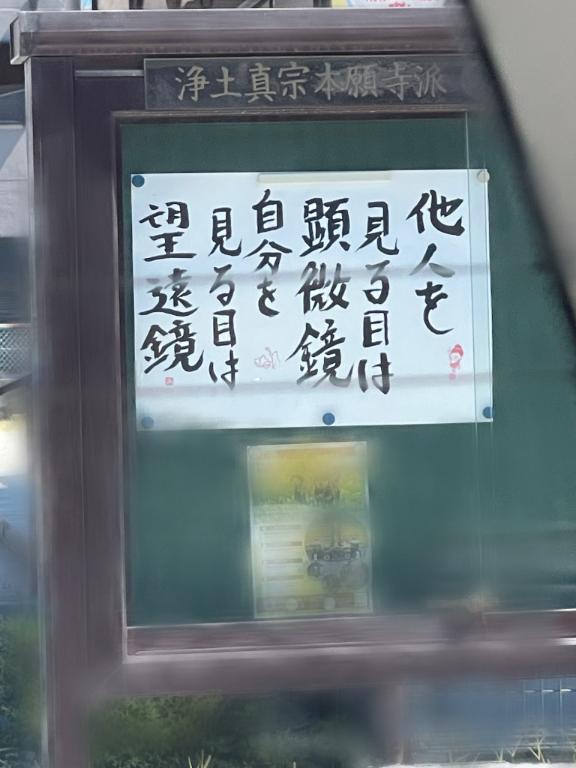 浄土真宗本願寺派
他人を
見る目は
顕微鏡
自分を
見る目は
望遠鏡